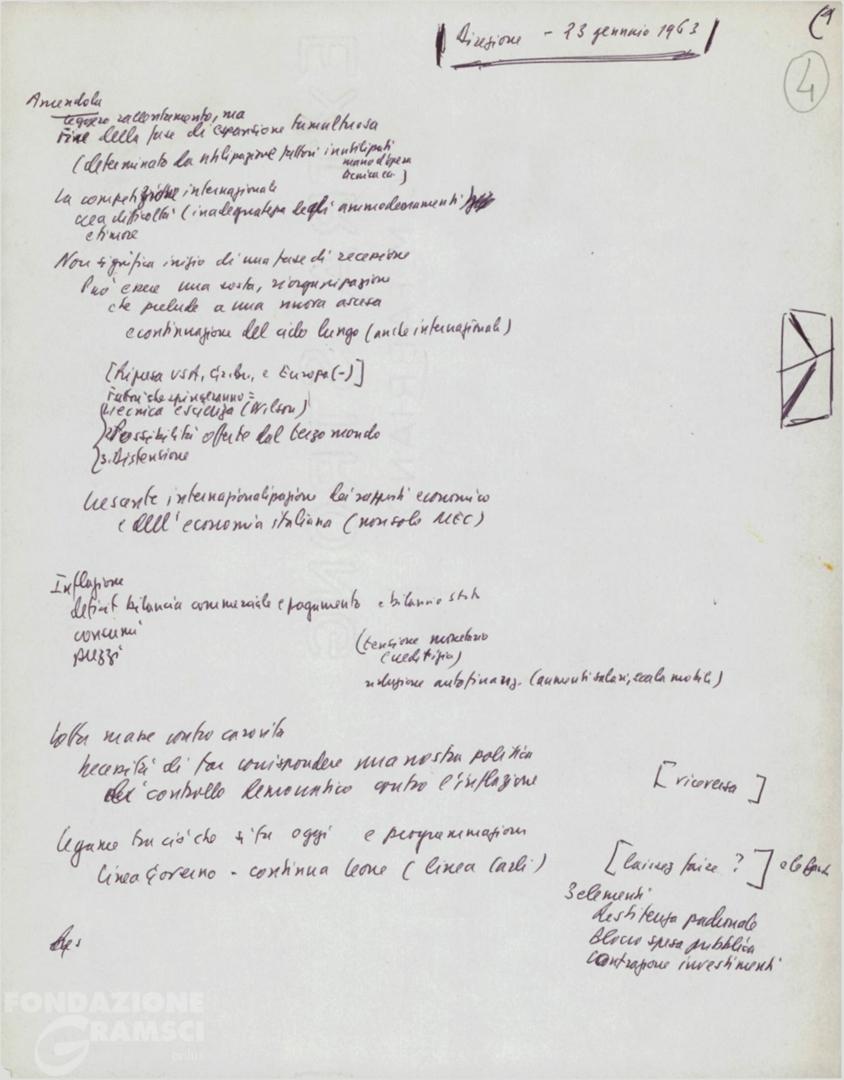 Direzione - 23 gennaio 1963
4
Amendola
leggero rallentamento, ma
Fine della fase di espansione tumultuosa
(determinato da utilizzazione fattori inutilizzati
mano d'opera
tecnica ecc)
La competizione internazionale
crea difficoltà (inadeguatezza degli ammodernamenti)
e timore
Non significa inizio di una fase di recessione
Può essere una sosta, riorganizzazione
che prelude a una nuova ascesa
e continuazione del ciclo lungo (anche internazionale)
[Ripresa USA, G. Br., e Europa (-)]
Fattori che spingeranno =
1. Tecnica e scienza (Wilson)
2. Possibilità offerte dal terzo mondo
3. Distensione
Crescente internazionalizzazione dei rapporti economico
e dell'economia italiana (non solo MEC)
Inflazione
deficit bilancia commerciale e pagamento e bilancio stato
consumi
prezzi
(tensione monetaria
creditizia)
riduzione autofinanz. (aumenti salari, scala mobile)
Lotta masse contro carovita
Necessità di far corrispondere una nostra politica
del controllo democratico contro l'inflazione
[viceversa]
Legame tra ciò che si fa oggi e programmazione
Linea Governo - continua Leone (linea Carli)
[laissez faire ?]
3 elementi
Resistenza padronale
Blocco spesa pubblica
Contrazione investimenti
FONDAZIONE
GRAMSCI
onlus